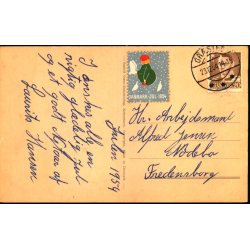 Julen 1954
I ønskes alle en
rigtig glædelig jul
og et godt Nytaar af
Laurits Hansen
DANMARK · JUL 1954
Hr. Arbejdsmand
Alfred Jensen
Nødebo
Fredensborg